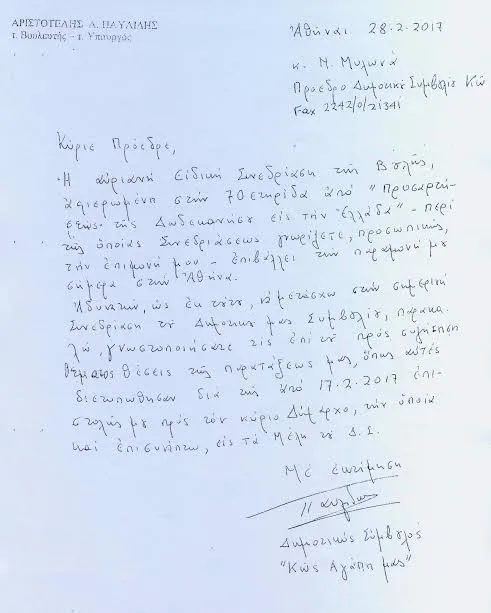 ΑΡΙΣΤΟΤΕΛΗΣ Α. ΠΑΥΛΙΔΗΣ
τ. Βουλευτής - τ. Υπουργός
Ἀθῆναι 28.2.2017
κ. Μ. Μυλωνᾶ
Πρόεδρο Δημοτικοῦ Συμβουλίου Κῶ
Fax 2242/0/21341
Κύριε Πρόεδρε,
Ἡ αὐριανή Εἰδική Συνεδρίαση τῆς Βουλῆς,
ἀφιερωμένη στήν 70ετηρίδα ἀπό "Προσαρτή-
σεως τῆς Δωδεκανήσου εἰς τήν Ἑλλάδα" - περί
τῆς ὁποίας Συνεδριάσεως γνωρίζετε, προσωπικῶς,
τήν ἐπιμονή μου - ἐπιβάλλει τήν παραμονή μου
σήμερα στήν Ἀθήνα.
Ἀδυνατῶν, ὡς ἐκ τούτου, νά μετάσχω στήν σημερινή
Συνεδρίαση τοῦ Δημοτικοῦ μας Συμβουλίου, παρακα-
λῶ, γνωστοποιήσατε τίς ἐπί τοῦ πρός συζήτηση
θέματος θέσεις τῆς παρατάξεως μας, ὅπως αὐτές
διετυπώθησαν διά τῆς ἀπό 17.2.2017 ἐπι-
στολῆς μου πρός τόν κύριο Δήμαρχο, τήν ὁποία
καί ἐπισυνάπτω, εἰς τά Μέλη τοῦ Δ.Σ.
Μέ ἐκτίμηση
Δημοτικός Σύμβουλος
"Κῶς Ἀγάπη μας"